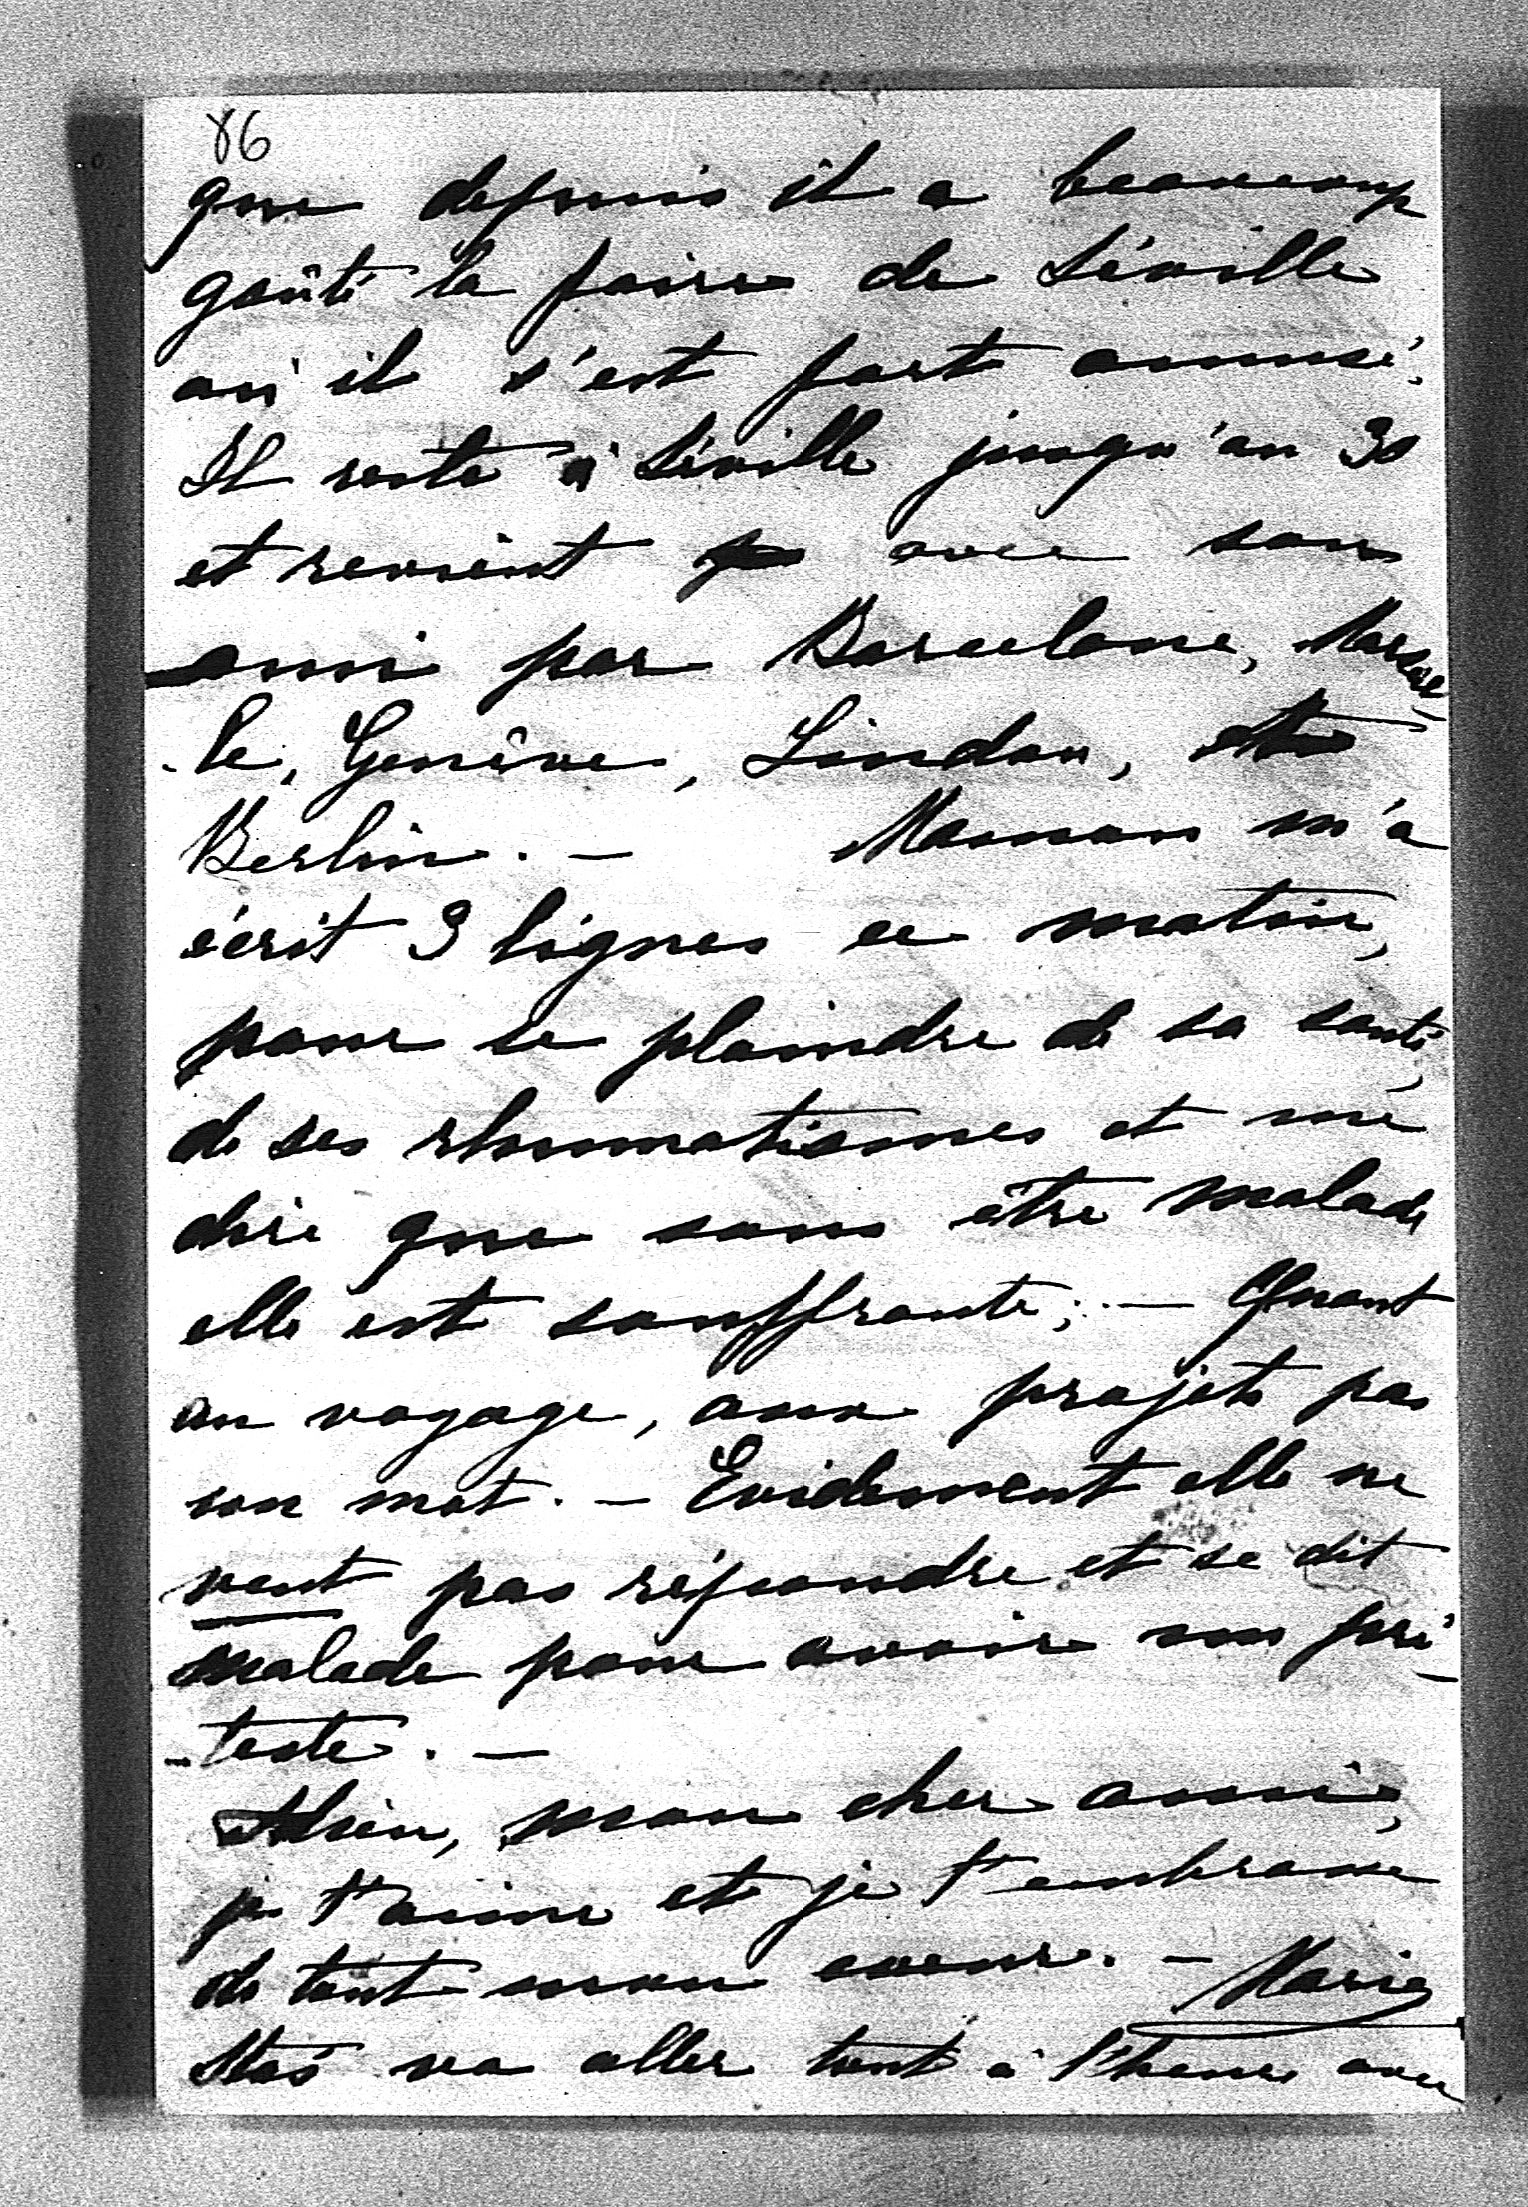 86
que depuis il a beaucoup
goûté la foire de Séville
où il s'est fort amusé.
Il reste à Séville jusqu'au 30
et revient avec son
ami par Barcelone, Marseil-
-le, Genève, Lindau,
Berlin. — Maman m'a
écrit 3 lignes ce matin,
pour se plaindre de sa santé,
de ses rhumatismes et me
dire que sans être malade
elle est souffrante; — Quant
au voyage, aux projets pas
un mot. — Evidement elle ne
veut pas répondre et se dit
malade pour avoir un pré-
-texte. —
Adieu, mon cher ami,
je t'aime et je t'embrasse
de tout mon coeur. — Marie
Stas va aller tout à l'heure avec